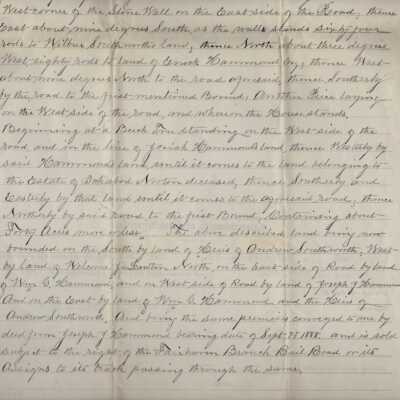 West corner of the Stone Wall on the East side of the Road, thence
East about nine degrees South, as the walls stands sixty four
rods to Wilbur Southworths land, thence North about three degrees
West eighty rods to land of Enoch Hammond, thence West
about nine degrees North to the road aforesaid, thence Southerly
by the road to the first mentioned Bound, Another Piece laying
on the West side of the road, and whereon the House stands,
Beginning at a Beech Tree standing on the West side of the
road and in the line of Josiah Hammonds land, thence Westerly by
said Hammonds land until it comes to the land belonging to
the Estate of Norton deceased, thence Southerly and
Easterly by that land until it comes to the aforesaid road, thence
Northerly by said road to the first Bound, Containing about
Forty Acres more or less. The above described land being now
bounded on the South by land of Heirs of Andrew Southworth, West
by land of Welcome J. Lawton North, on the East side of Road by land
of Wm C. Hammond, and on West side of Road by land of Joseph J Hammond
And on the East by land of Wm C. Hammond and the Heirs of
Andrew Southworth. And being the same premises conveyed to me by
deed from Joseph J Hammond bearing date of Sept. 1888. and is sold
subject to the right of the Fairhaven Branch Rail Road or its
Assigns to its track passing through the same.